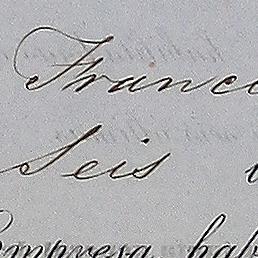 Franc
Seis
Empresa, hab